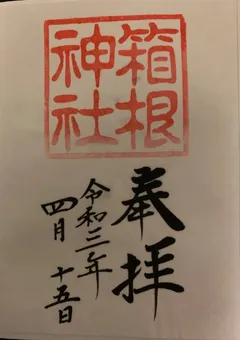 箱根
神社
奉拝
令和三年
四月 十五日